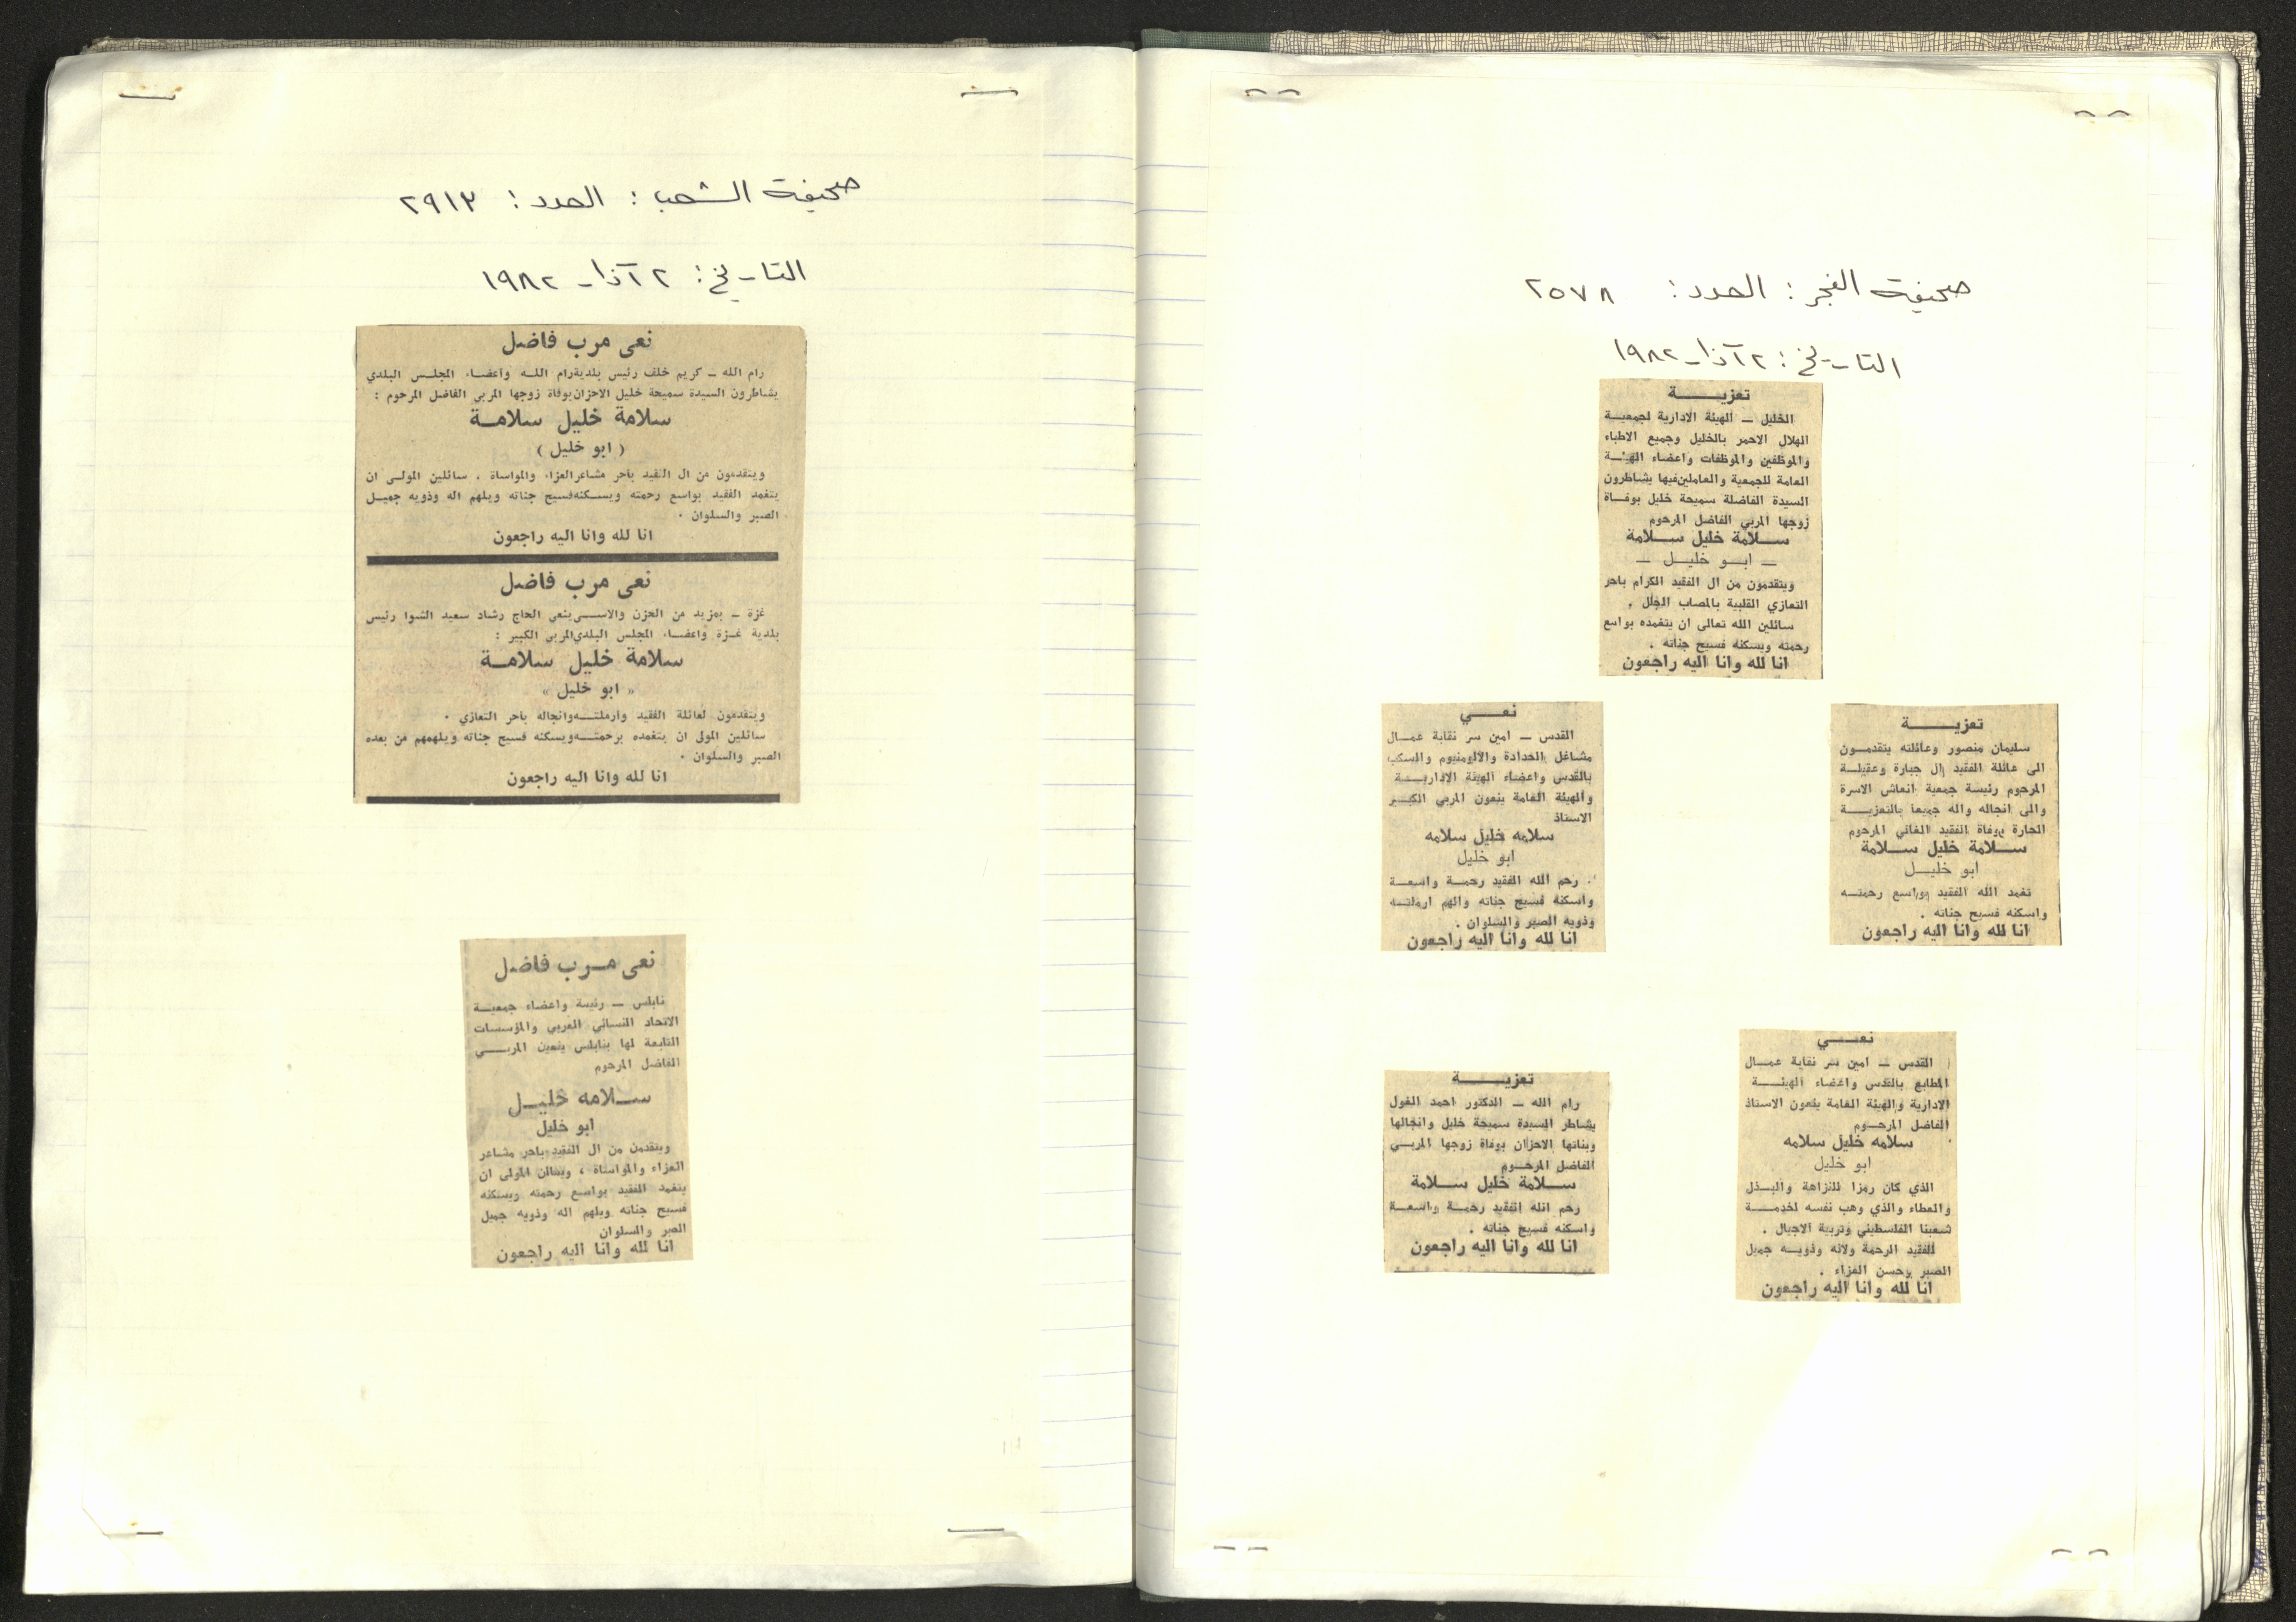 صحيفة الشعب : العدد : ٢٩١٣
التاريخ : ٢ آذار ١٩٨٢
نعى مرب فاضل
رام الله ـ كريم خلف رئيس بلدية رام اللـه واعضـاء المجلـس البلدي
يشاطرون السيدة سميحة خليل الاحزان بوفاة زوجها المربي الفاضل المرحوم :
سلامة خليل سلامـة
( ابو خليل )
ويتقدمون من ال الفقيد بأحر مشاعر العزاء والمواساة ، سائلين المولـى ان
يتغمد الفقيد بواسع رحمته ويسـكنه فسيح جناته ويلهم اله وذويه جميـل
الصبر والسلوان ٠
انا لله وانا اليه راجعون
نعى مرب فاضل
غزة ـ بمزيد من الحزن والاســى ينعي الحاج رشاد سعيد الشوا رئيس
بلدية غـزة واعضـاء المجلس البلدي المربي الكبير :
سلامة خليل سلامـة
« ابو خليل »
ويتقدمون لعائلة الفقيد وارملتــه وانجاله بأحر التعازي ٠
سائلين المولى ان يتغمده برحمتــه ويسكنه فسيح جناته ويلهمهم من بعده
الصبر والسلوان ٠
انا لله وانا اليه راجعون
نعى مـرب فاضل
نابلس ـ رئيسة واعضاء جمعيــة
الاتحاد النسائي العربي والمؤسسات
التابعة لها بنابلس ينعين المربــــي
الفاضل المرحوم
ســلامه خليــل
ابو خليل
ويتقدمن من ال الفقيد بأحر مشاعر
العزاء والمواساة ، ويسألن المولى ان
يتغمد الفقيد بواسع رحمته ويسكنه
فسيح جناته ويلهم اله وذويه جميل
الصبر والسلوان
انا لله وانا اليه راجعون
صحيفة الفجر : العدد : ٢٥٧٨
التاريخ : ٢ آذار ١٩٨٢
تعزيــــــة
الخليل ـ الهيئة الادارية لجمعيــة
الهلال الاحمر بالخليل وجميع الاطباء
والموظفين والموظفات واعضاء الهيئــة
العامة للجمعية والعاملين فيها يشاطرون
السيدة الفاضلة سميحة خليل بوفــاة
زوجها المربي الفاضل المرحوم
ســلامة خليل ســلامة
ـ ابــو خليــل ـ
ويتقدمون من ال الفقيد الكرام باحر
التعازي القلبية بالمصاب الجلل .
سائلين الله تعالى ان يتغمده بواسع
رحمته ويسكنه فسيح جناته .
انا لله وانا اليه راجعون
نعــــي
القدس ـ امين سر نقابة عمــال
مشاغل الحدادة والالومنيوم والسكب
بالقدس واعضاء الهيئة الاداريــــة
والهيئة العامة ينعون المربي الكبــير
الاستاذ
سلامه خليل سلامه
ابو خليل
. رحم الله الفقيد رحمــة واسعــة
واسكنه فسيح جناته والهم ارملتــه
وذويه الصبر والسلوان .
انا لله وانا اليه راجعون
تعزيــــــة
سليمان منصور وعائلته يتقدمــون
الى عائلة الفقيد ال جبارة وعقيلــة
المرحوم رئيسة جمعية انعاش الاسرة
والى انجاله واله جميعا بالتعزيــــة
الحارة بوفاة الفقيد الغالي المرحوم
ســلامة خليل ســلامة
ابو خليــل
تغمد الله الفقيد بواسع رحمتــه
واسكنه فسيح جناته .
انا لله وانا اليه راجعون
تعزيــــــة
رام الله ـ الدكتور احمد الغول
يشاطر السيدة سميحة خليل وانجالها
وبناتها الاحزان بوفاة زوجها المربــي
الفاضل المرحــوم
ســلامة خليل ســلامة
رحم الله الفقيد رحمــة واسعــة
واسكنه فسيح جناته .
انا لله وانا اليه راجعون
نعــــي
القدس ـ امين سر نقابة عمــال
المطابع بالقدس واعضاء الهيئــــة
الادارية والهيئة العامة ينعون الاستاذ
الفاضل المرحــوم
سلامه خليل سلامه
ابو خليل
الذي كان رمزا للنزاهة والبــذل
والعطاء والذي وهب نفسه لخدمــــة
شعبنا الفلسطيني وتربية الاجيال .
للفقيد الرحمة ولاله وذويــه جميل
الصبر وحسن العزاء .
انا لله وانا اليه راجعون